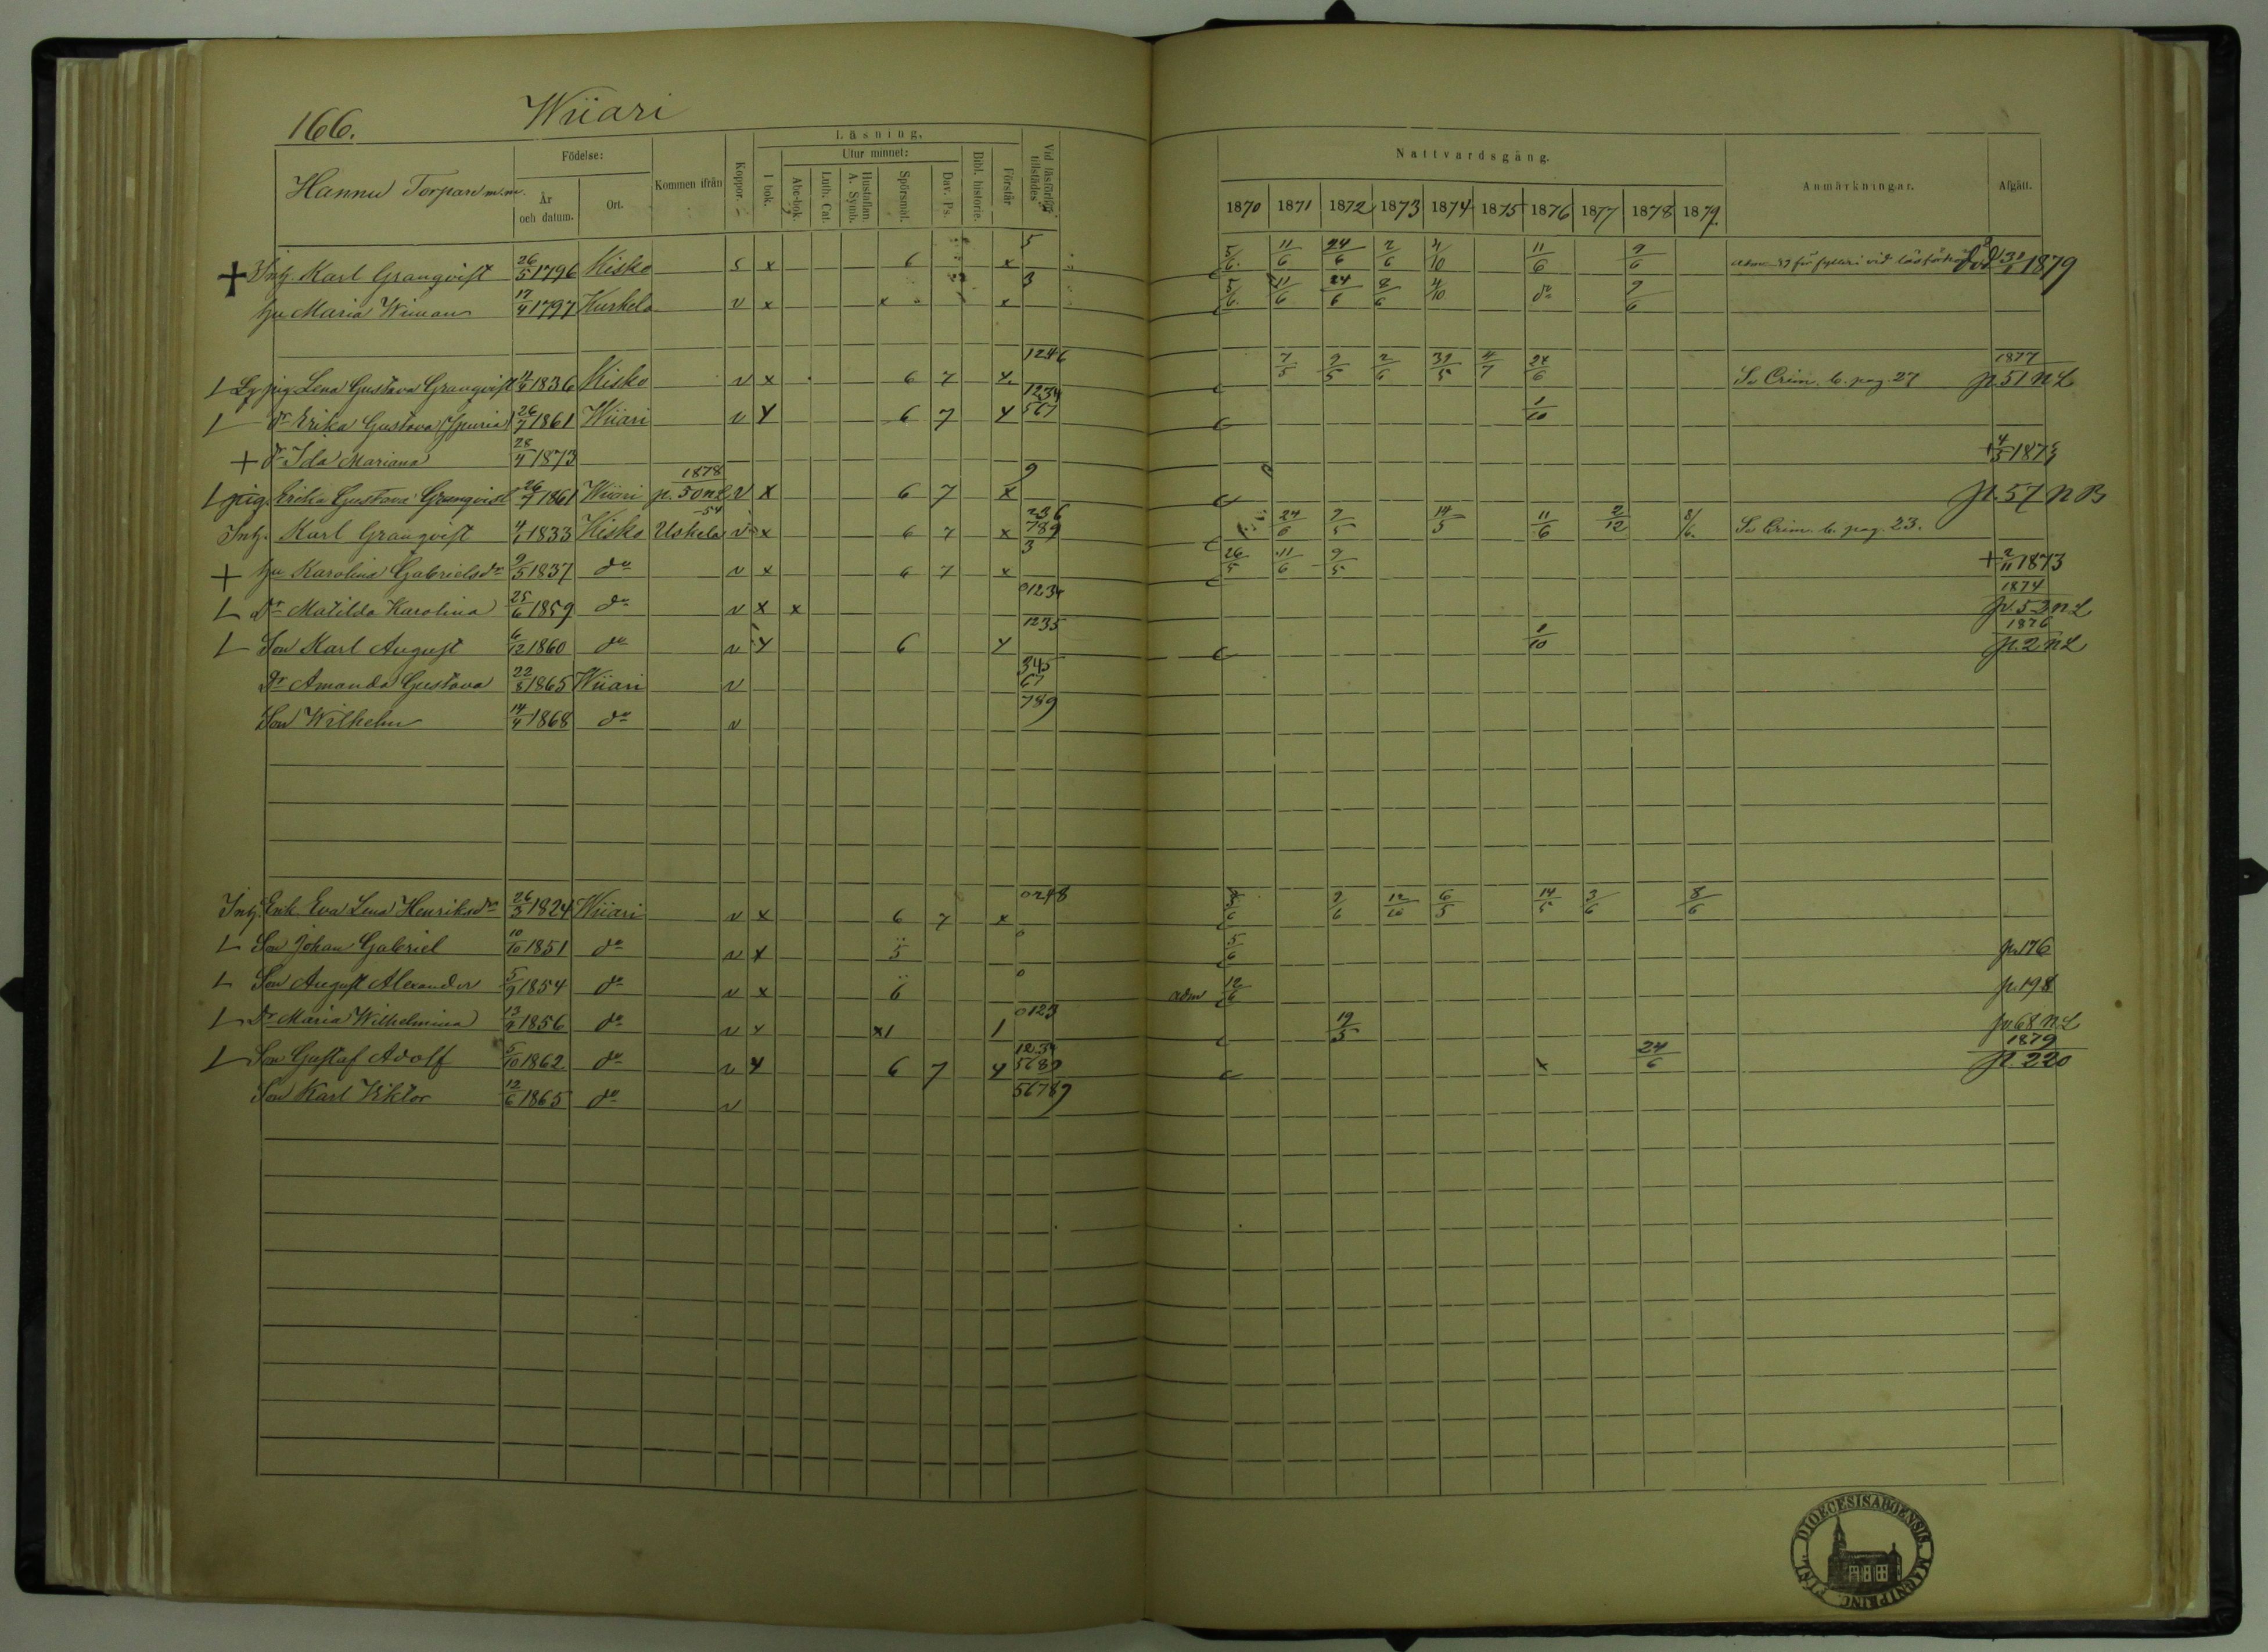 166. Wiiari
Hannu Torpare m.m.
Födelse:
År och datum.
Ort.
Kommen ifrån
Koppor.
Läsning.
I bok.
Utur minnet:
Abc-bok.
Luth. Cat.
Hustaflan. A. Symb.
Spörsmål.
Dav. Ps.
Bibl. historie.
Förstår
Vid läsförhör tillstädes
Nattvardsgång.
1870 1871 1872 1873 1874 1875 1876 1877 1878 1879
Anmärkningar.
Afgått.
+ Inh. Karl Granqvist 26/5 1796 Kisko s x 6 x 5 5/6. 11/6 24/6 2/6 4/10 11/6 9/6 för fylleri vid läsförhör död 1879
hu Maria Wiman 17/4 1797 Kurkela v x x x 3 5/6. 11/6 24/6 2/6 4/10 do 9/6
L pig. Lena Gustava Granqvist 1836 Kisko v x 6 7 x 1246 7/5 9/5 2/6 31/5 4/7 24/6 Se Crim. b. pag. 27 1877 p. 51 n L
L dr Erika Gustava (Spuria) 26/7 1861 Wiiari v x 6 7 x 1234 567 1/10
+ dr Ida Mariana 28/4 1873 + 4/5 1873
L pig. Erika Gustava Granqvist 26/7 1861 Wiiari 1878 p. 50 n L v x 6 7 x 9 p. 57 n B
Inh. Karl Granqvist 4/1 1833 Kisko Uskela -54 v x 6 7 x 236 789 24/6 9/5 14/5 11/6 2/12 8/6. Se Crim. b. pag. 23.
+ hu Karolina Gabrielsdr 9/5 1837 do v x 6 7 x 3 26/5 11/6 9/5 + 2/11 1873
L Dr Matilda Karolina 25/6 1859 do v x x 01234 1874 p. 52 n L
L Son Karl August 6/12 1860 do v x 6 x 1235 1/10 1876 p. 2 n L
Dr Amanda Gustava 22/8 1865 Wiiari v 345 67
Son Wilhelm 14/4 1868 do v 789
Inh. Enk. Eva Lena Henriksdr 26/3 1824 Wiiari v x 6 7 x 0248 2/6 12/10 6/5 14/5 3/6 8/6
L Son Johan Gabriel 10/10 1851 do v x 5 0 5/6 p. 176
L Son August Alexander 5/9 1854 do v x 6 0 adm 12/6 p. 198
L Dr Maria Wilhelmina 1856 do v x x1 1 0123 19/5 p. 68 n L
L Son Gustaf Adolf 5/10 1862 do v x 6 7 x 1234 5689 x 24/6 1879 p. 220
Son Karl Viktor 12/6 1865 do v 56789
FINL. DIOECESIS ABOENSIS. MAGNI PRINC.